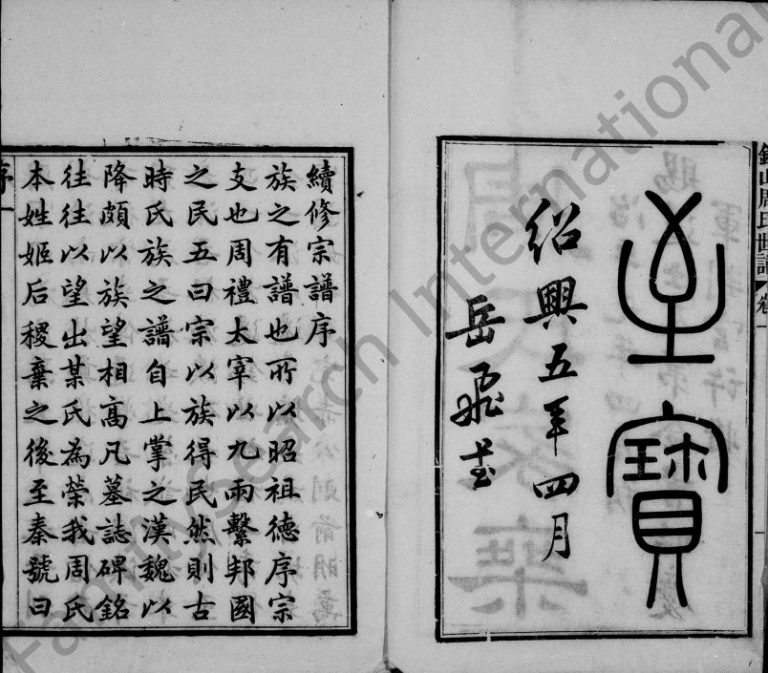 山周氏世譜 卷一
至寶
紹興五年四月
岳飛書
續修宗譜序
族之有譜也所以昭祖德序宗
支也周禮太宰以九兩繫邦國
之民五曰宗以族得民然則古
時氏族之譜自上掌之漢魏以
降頗以族望相高凡墓誌碑銘
往往以望出某氏為榮我周氏
本姓姬后稷棄之後至秦號曰
序 一
FamilySearch International